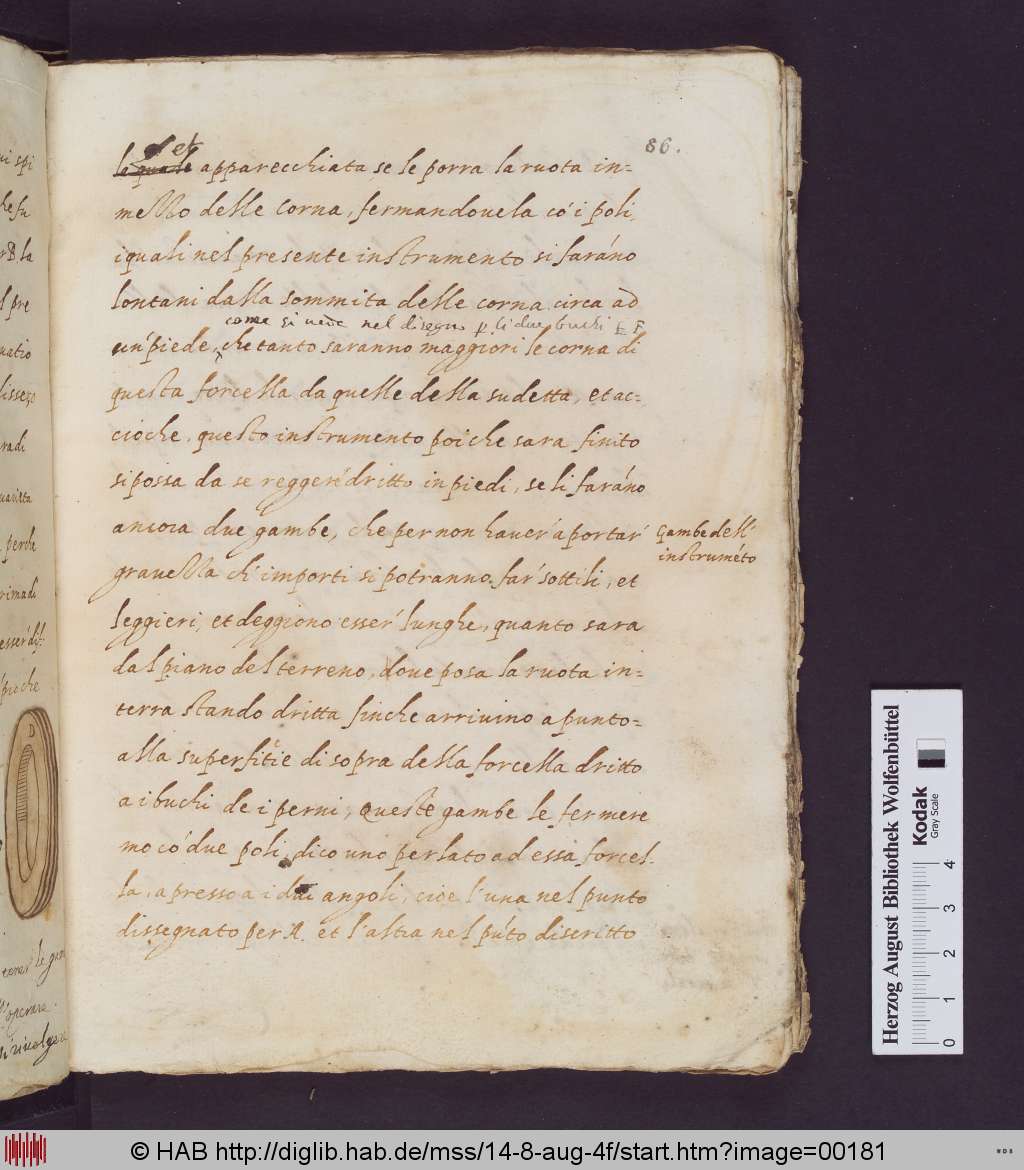 86.
et
la quale apparecchiata se le porra la ruota in=
mezzo delle corna, fermandovela có i poli,
i quali nel presente instrumento si faráno
lontani dalla sommita delle corna circa ad
come si vede nel disegno p li due buchi E F
un' piede, che tanto saranno maggiori le corna di
questa forcella da quelle della sudetta, et ac=
cioche, questo instrumento poi che sara finito
si possa da se reggere dritto in piedi, se li faráno
ancora due gambe, che per non haver' a portar'
gravezza ch' importi si potranno far' sottili, et
leggieri, et deggiono esser' lunghe, quanto sara
dal piano del terreno, dove posa la ruota in=
terra stando dritta finche arrivino a punto=
alla superfitie di sopra della forcella dritto
a i buchi de i perni, queste gambe le fermere
mo có due poli, dico uno per lato ad essa forcel=
la, a presso a i dui angoli, cioe l'una nel punto
dissegnato per A. et l'altra nel púto discritto
Gambe dell'
instruméto
ui spi
la
l pre
radi
perche
rima di
D
l'operare
rivolgere
Herzog August Bibliothek Wolfenbüttel
Kodak
Gray Scale
0 1 2 3 4
© HAB http://diglib.hab.de/mss/14-8-aug-4f/start.htm?image=00181
WDB